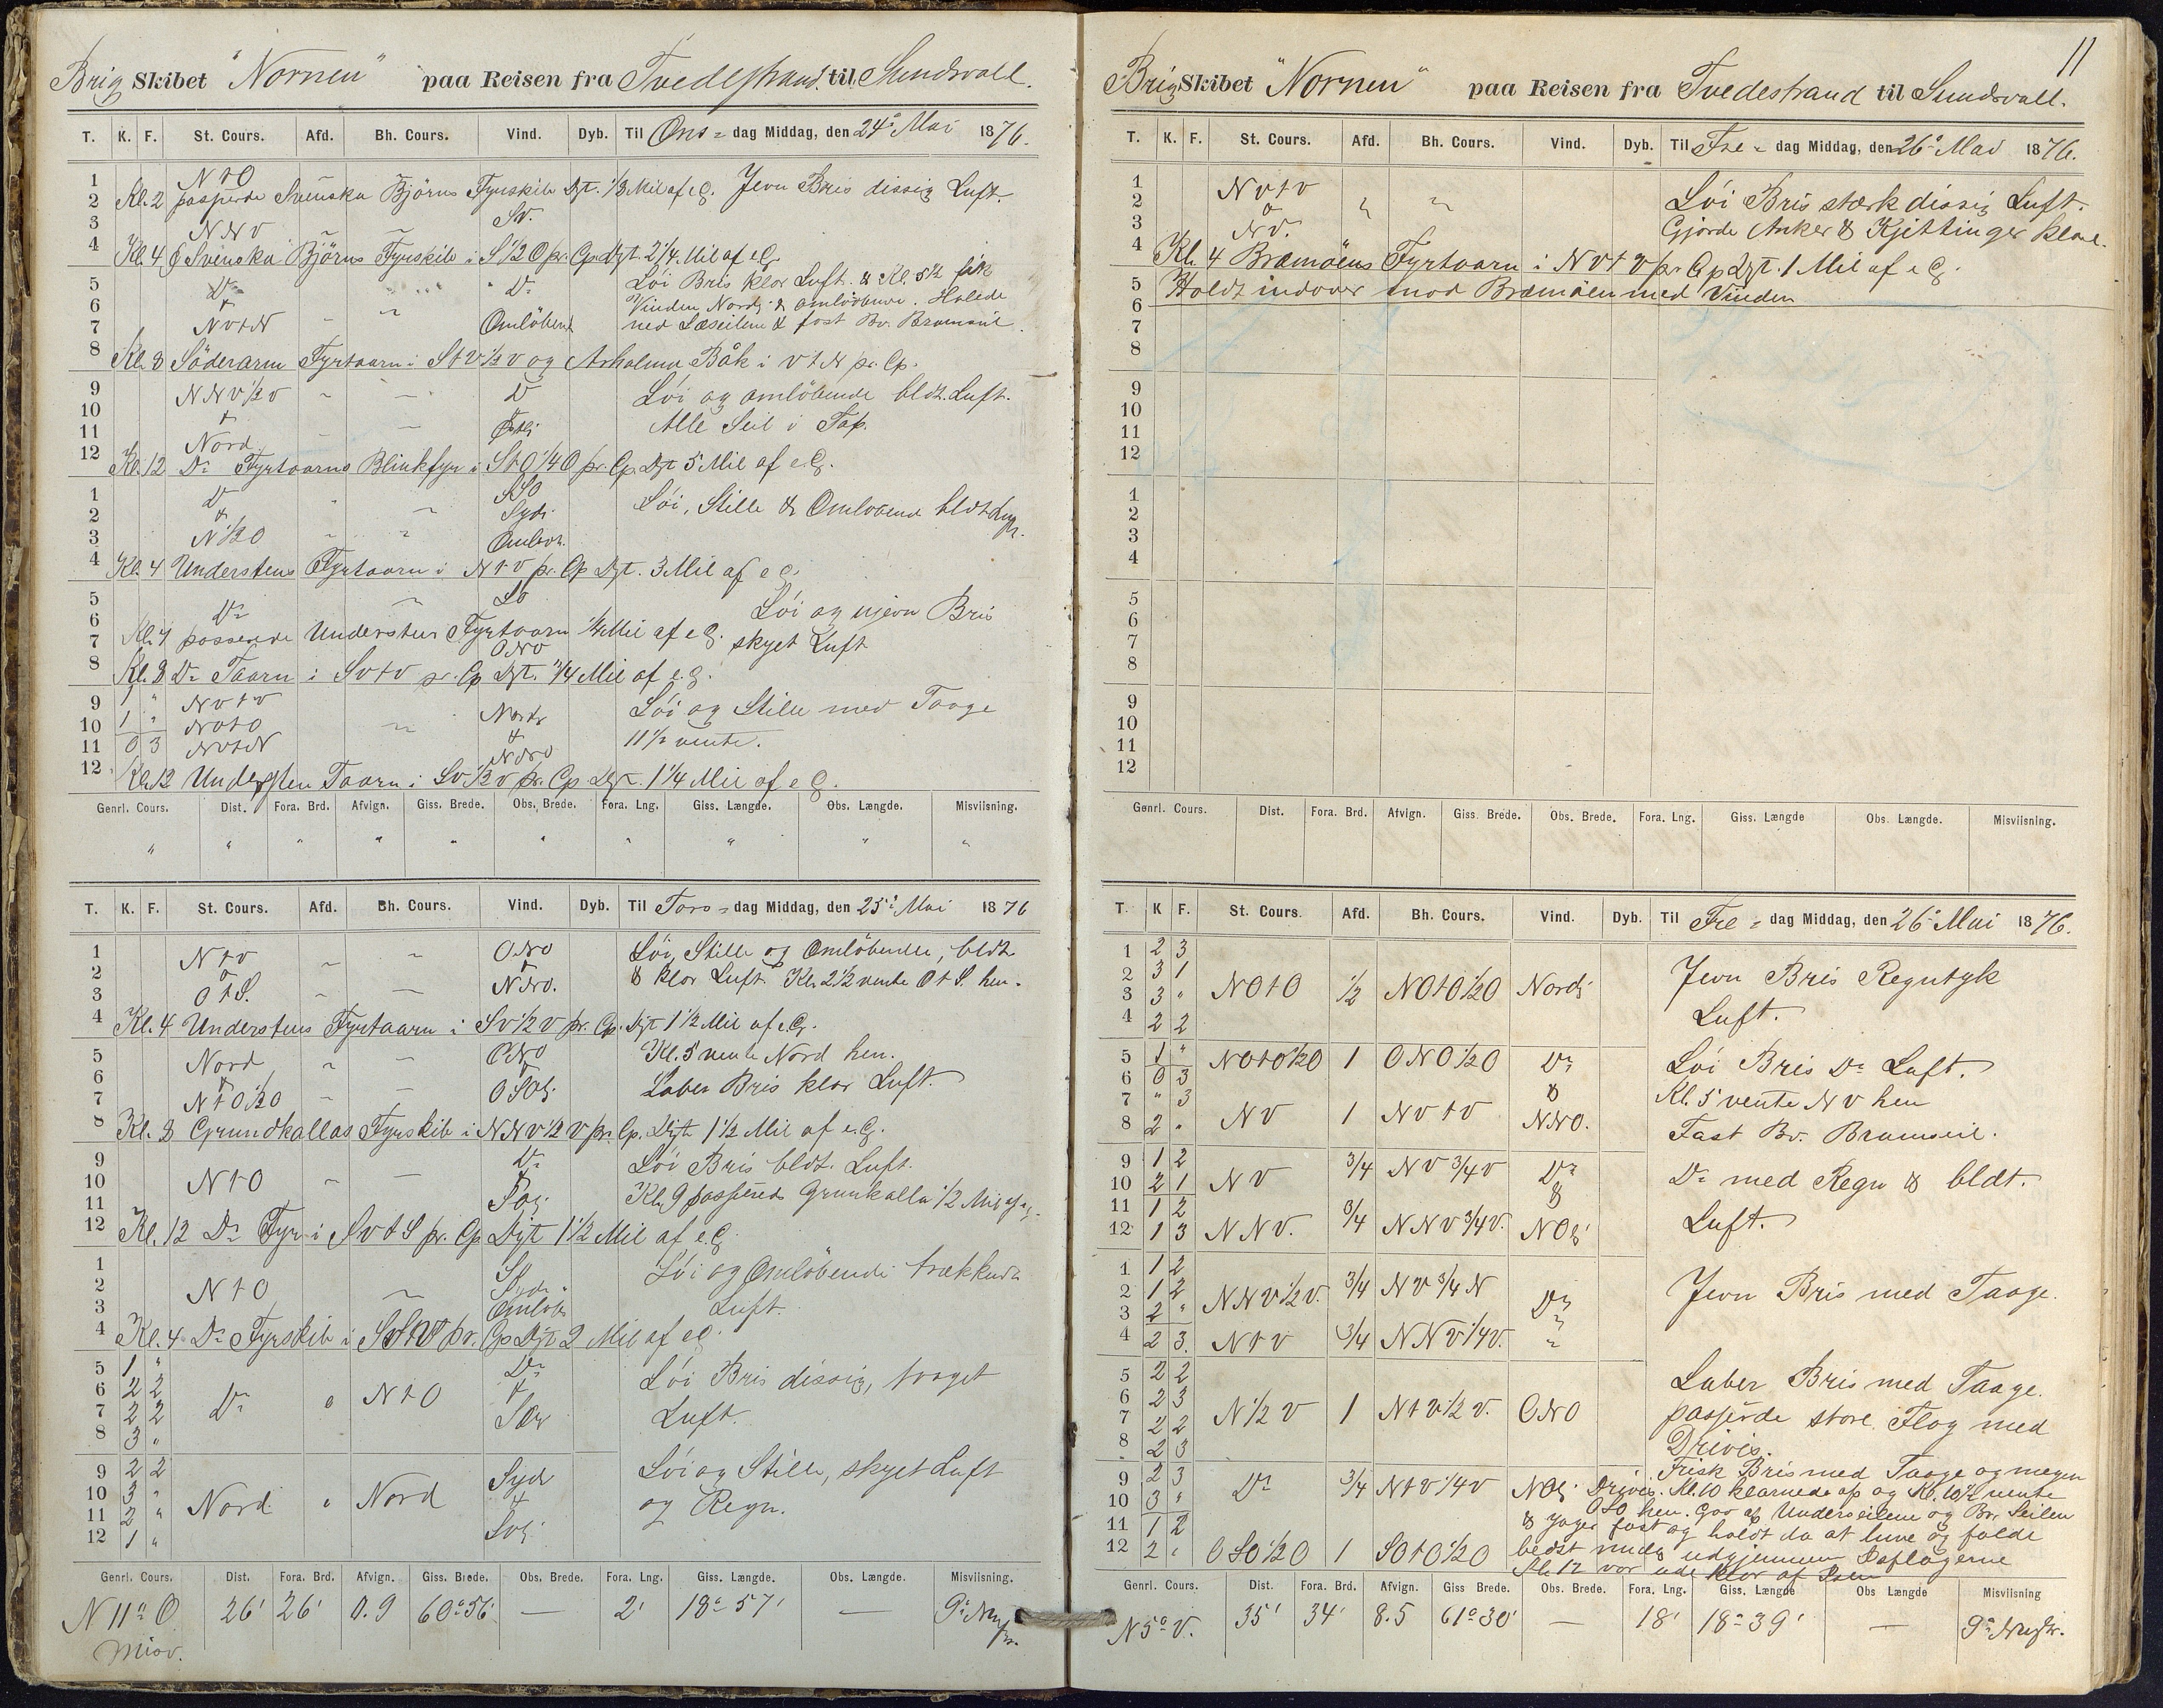 Brig Skibet "Nornen" paa Reisen fra Tvedestrand til Sundsvall.
T. K. F. St. Cours. Afd. Bh. Cours. Vind. Dyb. Til Ons = dag Middag, den 24de Mai 1876.
1 N t O
2 Kl. 2 passerde Svenska Björns Fyrskib Dyt. 1/3 Mil af e.G. Jevn Bris dissig Luft.
3 N N V SV.
4 Kl. 4 Svenska Björns Fyrskib i S 1/2 O pr. Cp. Dyt. 2 1/4 Mil af e.G.
5 Do Do Löi Bris klar Luft. & Kl. 5 1/2 fik
6 & Vinden Nordl. & omlöbene. Halede
7 NOtN Omlöbend ned Læseilene & fast Bv. Bramseil.
8 Kl. 8 Söderarm Fyrtaarn i S t V 1/2 V og Arholma Båk i V t N pr. Cp.
9 NNV 1/2 V Do Löi og omlöbende bldt. Luft.
10 &
11 Nord Østli Alle Seil i Top.
12 Kl. 12 Do Fyrtaarns Blinkfyr i S t O 1/4 O pr. Cp. Dyt 5 Mil af e.G.
1 Do SSO
2 & Sydi Löi, Stille & Omlöbend bldt Luft.
3 N 1/2 O Omlöb.
4 Kl. 4 Understens Fyrtaarn i N t V pr. Cp Dyt. 3 Mil af e G.
5 SO
6 Do Löi og ujevn Bris
7 passerede Understens Fyrtaarn 1/4 Mil af e G. skyet Luft
ONO
8 Kl. 8 Do Taarn i SVtV pr. Cp Dyt. 3/4 Mil af e.G.
9 1 " NVtV
10 1 " NOtO Nordl Löi og Stille med Taage
11 0 3 NOtN & 11 1/2 vente.
NNO
12 Kl. 12 Understen Taarn i SV 1/2 V pr. Cp Dyt. 1 1/4 Mil af e G.
Genrl. Cours. Dist. Fora. Brd. Afvign. Giss. Brede. Obs. Brede. Fora. Lng. Giss. Længde. Obs. Længde. Misviisning.
" " " " " " " " " "
T. K. F. St. Cours. Afd. Bh. Cours. Vind. Dyb. Til Tors = dag Middag, den 25de Mai 1876
1 N t V ONO Löi, Stille og Omlöbende, bldt
2 & &
3 O t S. NNO. & klar Luft. Kl. 2 1/2 vente O t S. hen.
4 Kl. 4 Understens Fyrtaarn i SV 1/2 V pr. Cp. Dyt 1 1/2 Mil af e.G.
5 Nord ONO Kl. 5 vente Nord hen.
6 & &
7 N t O 1/2 O OSOl. Laber Bris klar Luft.
8 Kl. 8 Grundkallas Fyrskib i NNV 1/2 V pr. Cp. Dyt 1 1/2 Mil af e.G.
9 Do Löi Bris bldt. Luft.
10 N t O
11 Kl. 9 passered Grunkalla 1/2 Mil af e.G.
12 Kl. 12 Do Fyr i SV t S pr. Cp Dyt 1 1/2 Mil af e.G
1 Löi og Omlöbende trækkende
2 N t O Sydl.
3 Omlöb Luft.
4 Kl. 4 Do Fyrskib i pr. Cp Dyt 2 Mil af e G.
5 1 " Do Löi Bris dissig, taaget
6 2 2 Do " N t O &
7 2 2 Luft.
8 3 "
9 2 2 Sydl Löi og Stille, skyet Luft
10 3 " Nord " Nord &
11 2 " og Regn.
12 1 " SOl.
Genrl. Cours. Dist. Fora. Brd. Afvign. Giss. Brede. Obs. Brede. Fora. Lng. Giss. Længde. Obs. Længde. Misviisning.
N 11° O 26' 26' 0.9 60° 56' — 2' 18° 57' — 9°
Misv.
11
Brig Skibet "Nornen" paa Reisen fra Tvedestrand til Sundsvall.
T. K. F. St. Cours. Afd. Bh. Cours. Vind. Dyb. Til Fre = dag Middag, den 26de Mai 1876.
1 NVtV Löi Bris stærk dissig Luft.
2 &
3 NV. Gjorde Anker & Kjettinger klar.
4 Kl. 4 Bramöens Fyrtaarn i NVtV pr. Cp Dyt. 1 Mil af e G.
5 Holdt indover mod Bramöen med Vinden
6
7
8
9
10
11
12
1
2
3
4
5
6
7
8
9
10
11
12
Genrl. Cours. Dist. Fora. Brd. Afvign. Giss. Brede. Obs. Brede. Fora. Lng. Giss. Længde Obs. Længde. Misviisning.
T. K F. St. Cours. Afd. Bh. Cours. Vind. Dyb. Til Fre = dag Middag, den 26de Mai 1876.
1 2 3 Jevn Bris Regntyk
2 3 1 NOtO 1/2 NOtO 1/2 O Nordl
3 3 " Luft.
4 2 2
5 1 " NOtO 1/2 O 1 ONO 1/2 O Do Löi Bris Do Luft.
6 0 3 &
7 " 3 Kl. 5 vente NV hen
8 2 " NV 1 NVtV NNO. Fast Bv. Bramseil.
9 1 2 NV 3/4 NV 3/4 V Do Do med Regn & bldt.
10 2 1 &
11 1 2 Luft.
12 1 3 NNV. 3/4 NNV 3/4 V. NOl
1 1 2 Jevn Bris med Taage.
2 1 2 NNV 1/2 V. 3/4 NV 3/4 N Do
3 2 "
4 2 3. N t V 3/4 NNV 1/4 V. "
5 2 2 Laber Bris med Taage.
6 2 3 N 1/2 V 1 N t V 1/2 V. ONO
7 2 2 passerde store Flag med
8 2 3 Drivis.
9 2 3 Do 3/4 N t V 1/4 V NOl. Frisk Bris med Taage og megen
10 3 " Drivis. Kl. 10 klarnede af og Kl. 10 1/2 vente
OSO hen. Gav af Underseilene og Br. Seilen
11 1 2 & Jager fast og holdt da at luve og falde
12 2 " OSO 1/2 O 1 SOtO 1/2 O bedst mulig udgjennem Isflagerne
Kl. 12 var ude klar af Isen
Genrl. Cours. Dist. Fora. Brd. Afvign. Giss Brede. Obs. Brede. Fora. Lng. Giss. Længde Obs Længde Misviisning
N 5° V. 35' 34' 8.5 61° 30' — 18' 18° 39' — 9°